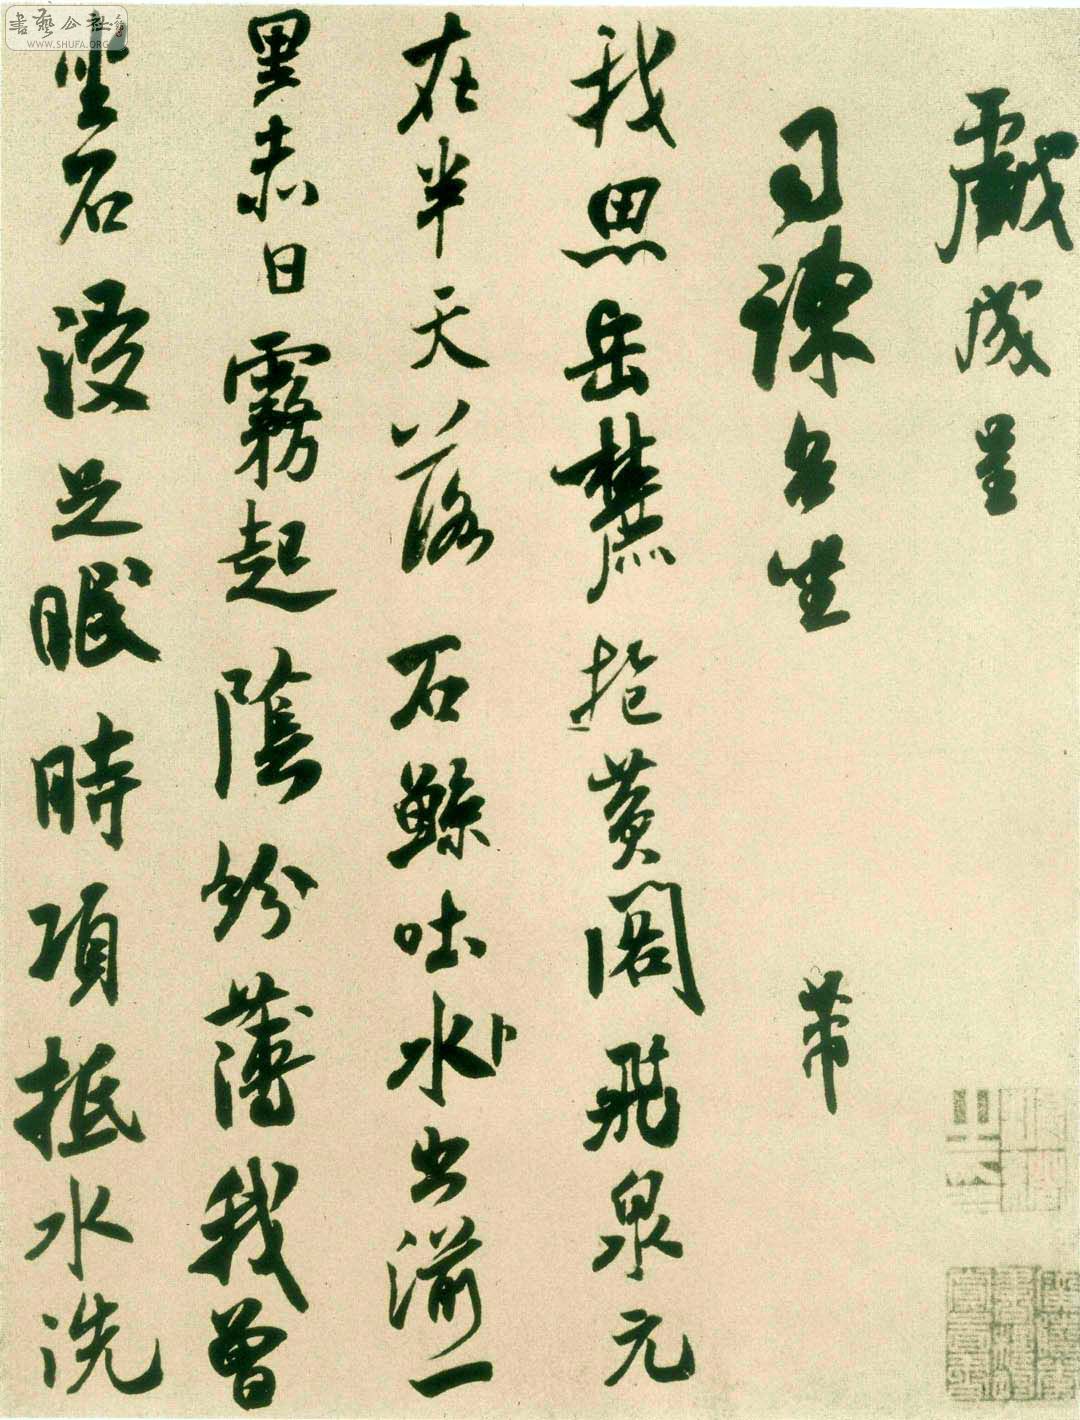 戲成呈
司諫台坐
芾
我思岳麓抱黄閣飛泉元
在半天落石鯨吐水卜出湔一
里赤日霧起陰紛薄我曾
坐石浸足眠時項抵水洗
書藝公社
WWW.SHUFA.ORG